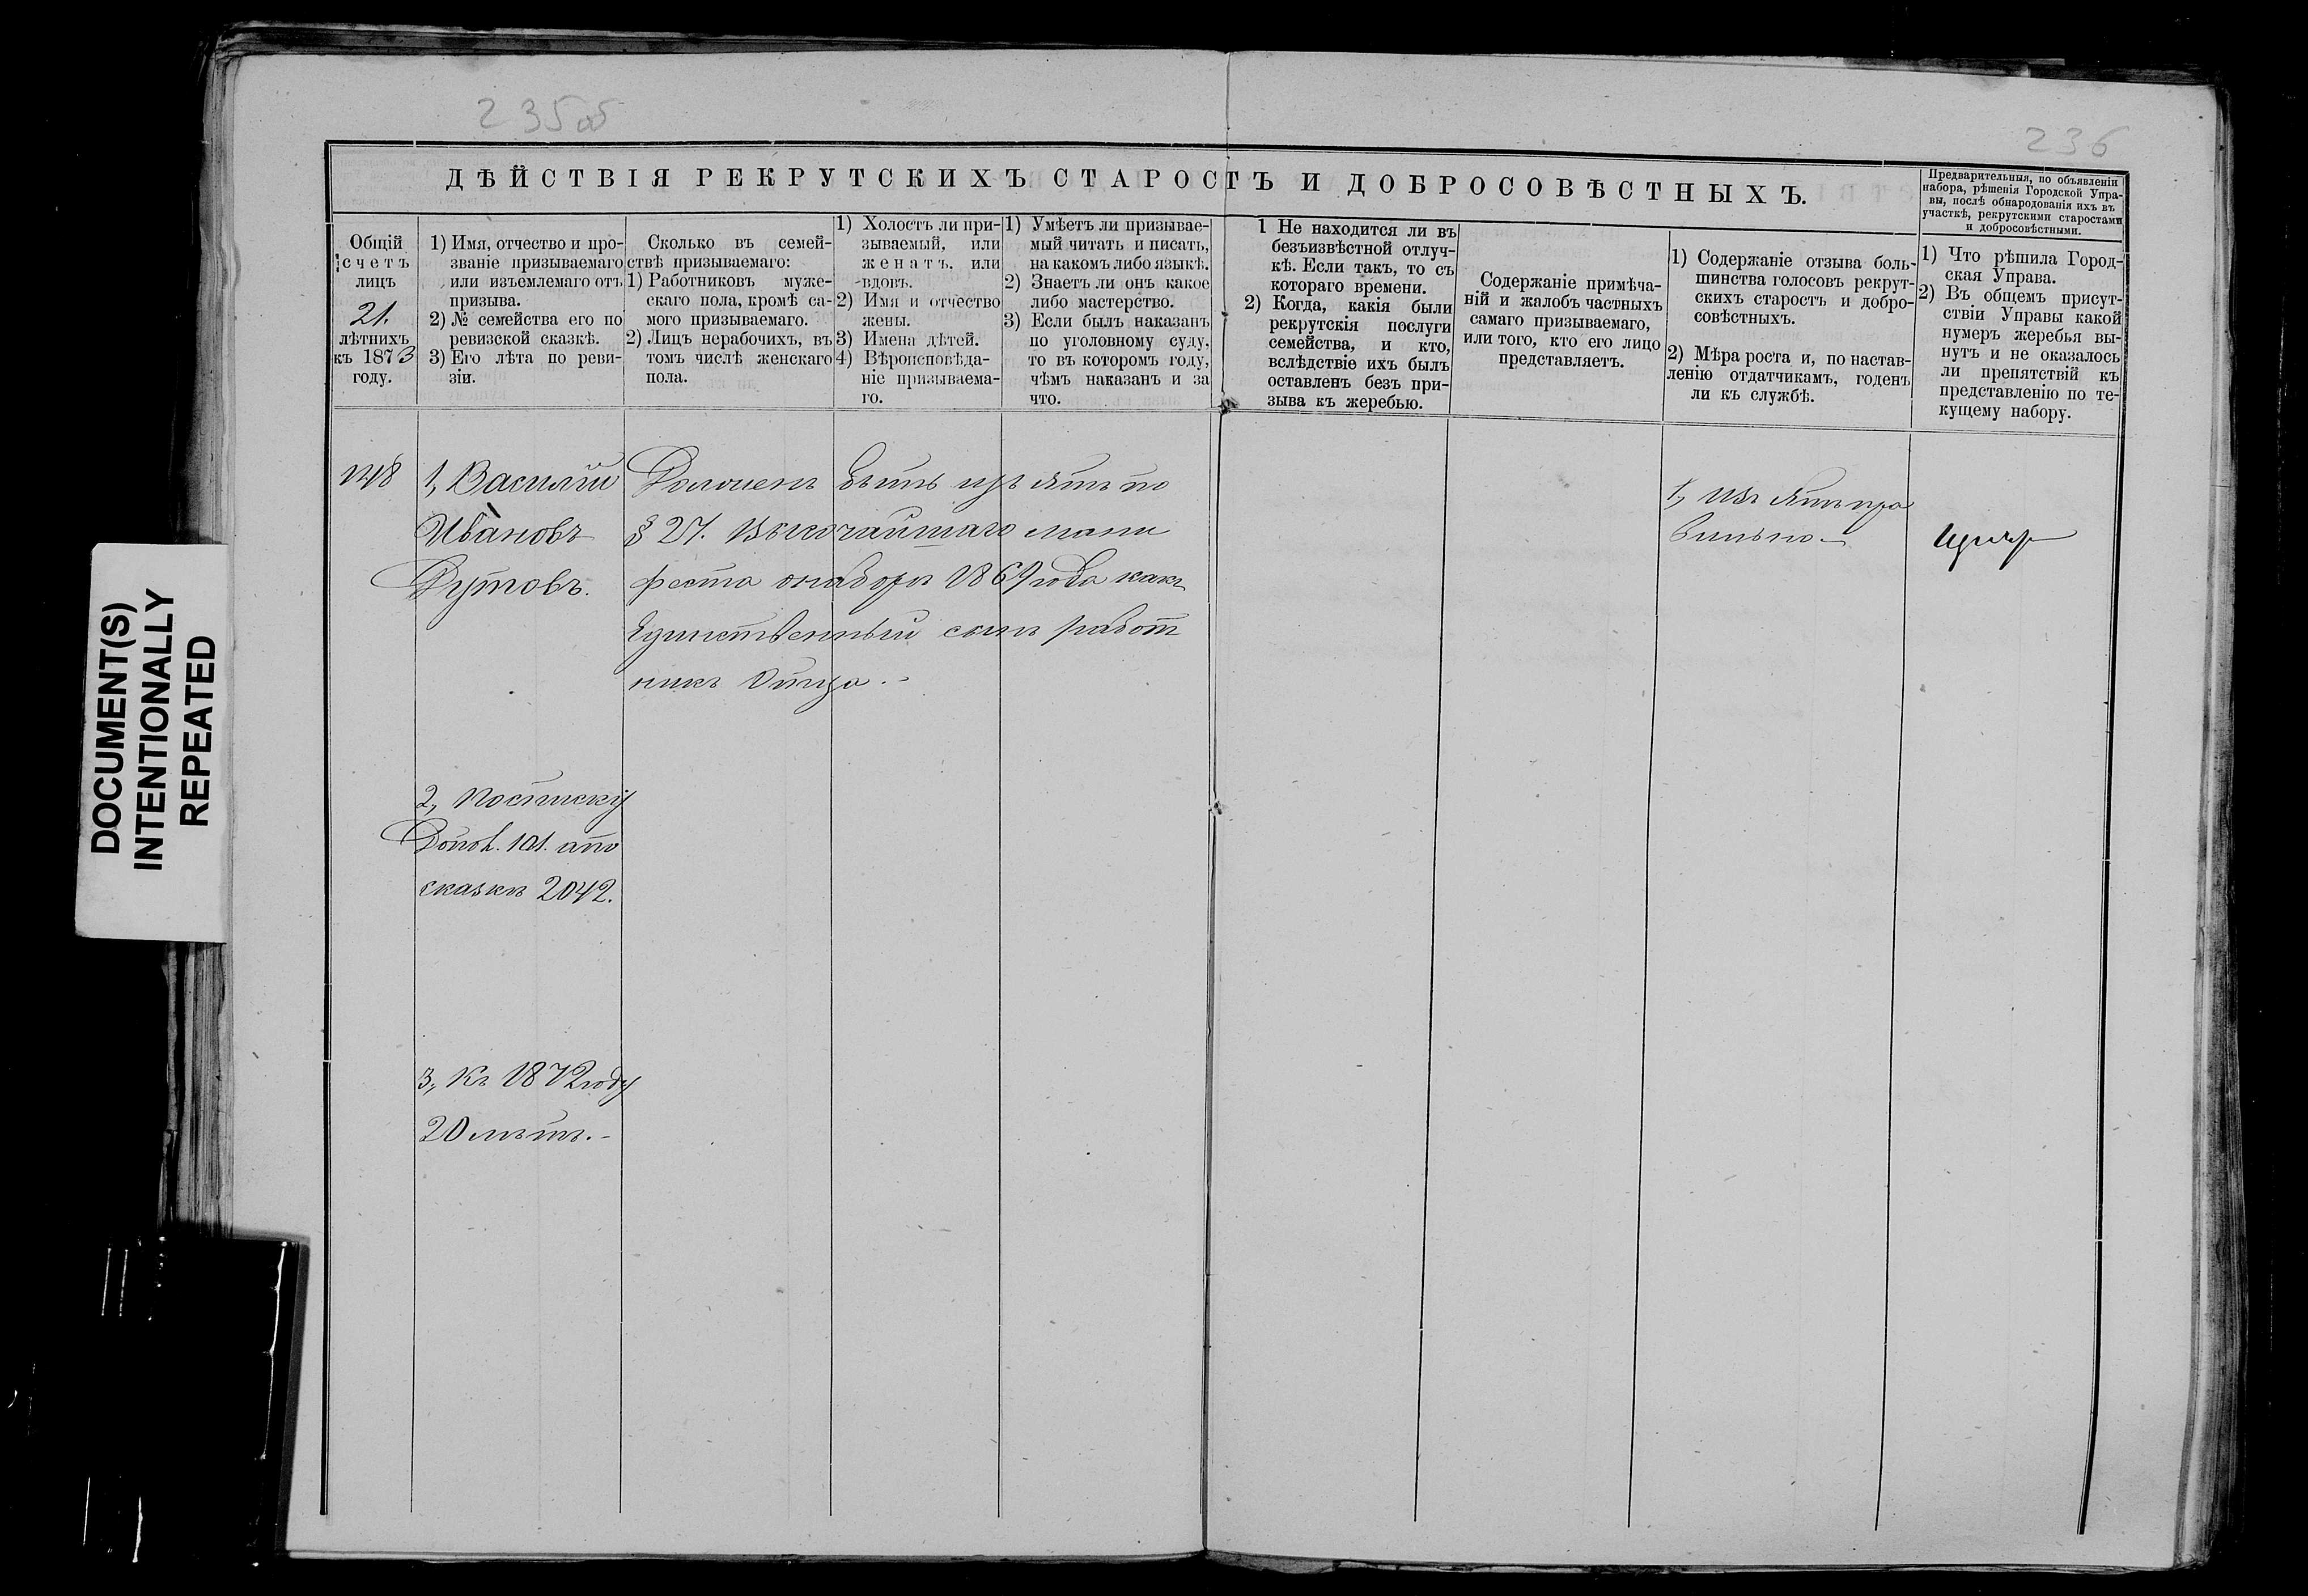 235об
236
ДѢЙСТВІЯ РЕКРУТСКИХЪ СТАРОСТЪ И ДОБРОСОВѢСТНЫХЪ.
Предварительныя, по объявленіи
набора, рѣшенія Городской Упра-
вы, послѣ обнародованія ихъ въ
участкѣ, рекрутскими старостами
и добросовѣстными.
Общій
счетъ
лицъ
21.
лѣтнихъ
къ 1873
году.
1) Имя, отчество и про-
званіе призываемаго
или изъемлемаго отъ
призыва.
2) № семейства его по
ревизской сказкѣ.
3) Его лѣта по реви-
зіи.
Сколько въ семей-
ствѣ призываемаго:
1) Работниковъ муже-
скаго пола, кромѣ са-
мого призываемаго.
2) Лицъ нерабочихъ, въ
томъ числѣ женскаго
пола.
1) Холостъ ли при-
зываемый, или
женатъ, или
вдовъ.
2) Имя и отчество
жены.
3) Имена дѣтей.
4) Вѣроисповѣда-
ніе призываема-
го.
1) Умѣетъ ли призывае-
мый читать и писать,
на какомъ либо языкѣ.
2) Знаетъ ли онъ какое
либо мастерство.
3) Если былъ наказанъ
по уголовному суду,
то въ которомъ году,
чѣмъ наказанъ и за
что.
1 Не находится ли въ
безъизвѣстной отлуч-
кѣ. Если такъ, то съ
котораго времени.
2) Когда, какія были
рекрутскія послуги
семейства, и кто,
вслѣдствіе ихъ былъ
оставленъ безъ при-
зыва къ жеребью.
Содержаніе примѣча-
ній и жалобъ частныхъ
самаго призываемаго,
или того, кто его лицо
представляетъ.
1) Содержаніе отзыва боль-
шинства голосовъ рекрут-
скихъ старостъ и добро-
совѣстныхъ.
2) Мѣра роста и, по настав-
ленію отдатчикамъ, годенъ
ли къ службѣ.
1) Что рѣшила Город-
ская Управа.
2) Въ общемъ присут-
ствіи Управы какой
нумеръ жеребья вы-
нутъ и не оказалось
ли препятствій къ
представленію по те-
кущему набору.
148
1, Василій
Ивановъ
Дутовъ.
2, По списку
Допол. 101. а по
сказкѣ 2042.
3, Къ 1872 году
20 лѣтъ.-
Долженъ быть изъятъ по
§ 27. Высочайшаго мани
феста о наборѣ 1869 года какъ
Единственный сынъ работ
никъ Отца.-
1, Изъятъ пра
вильно.-
DOCUMENT(S)
INTENTIONALLY
REPEATED